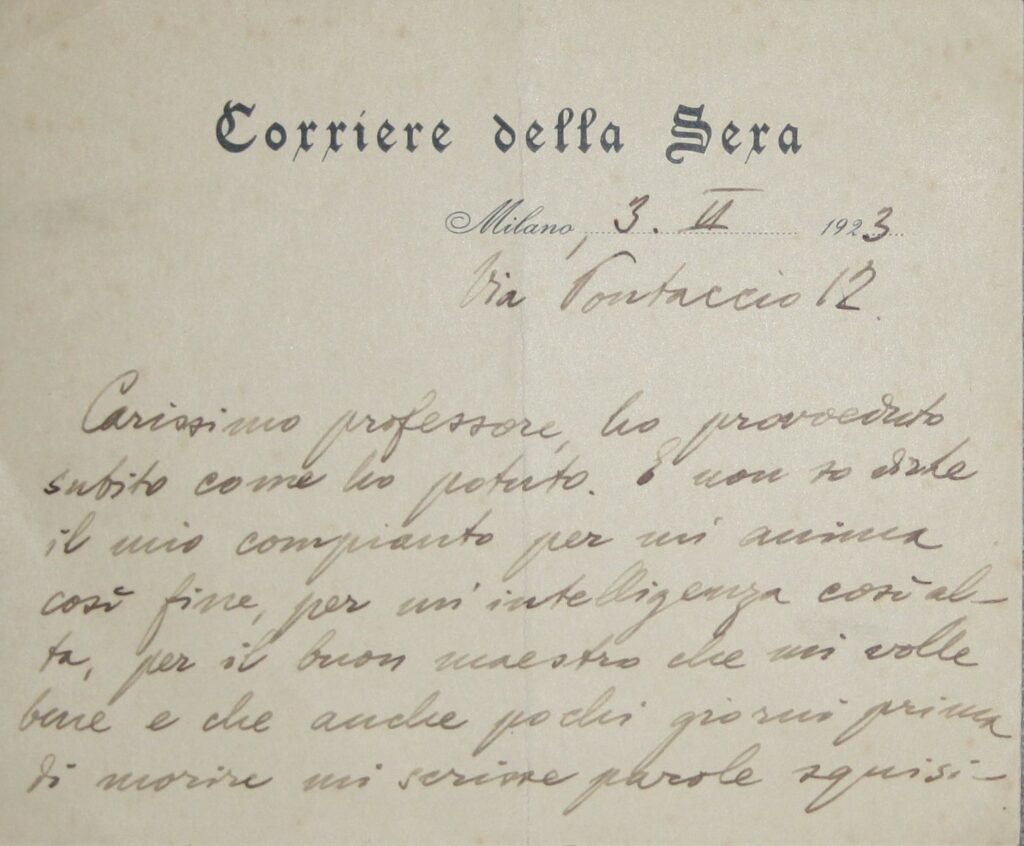 Corriere della Sera
Milano, 3. II 1923
Via Pontaccio 12.
Carissimo professore, ho provveduto
subito come ho potuto. E non so dirle
il mio compianto per un'anima
così fine, per un'intelligenza così al-
ta, per il buon maestro che mi volle
bene e che anche pochi giorni prima
di morire mi scrisse parole squisi-